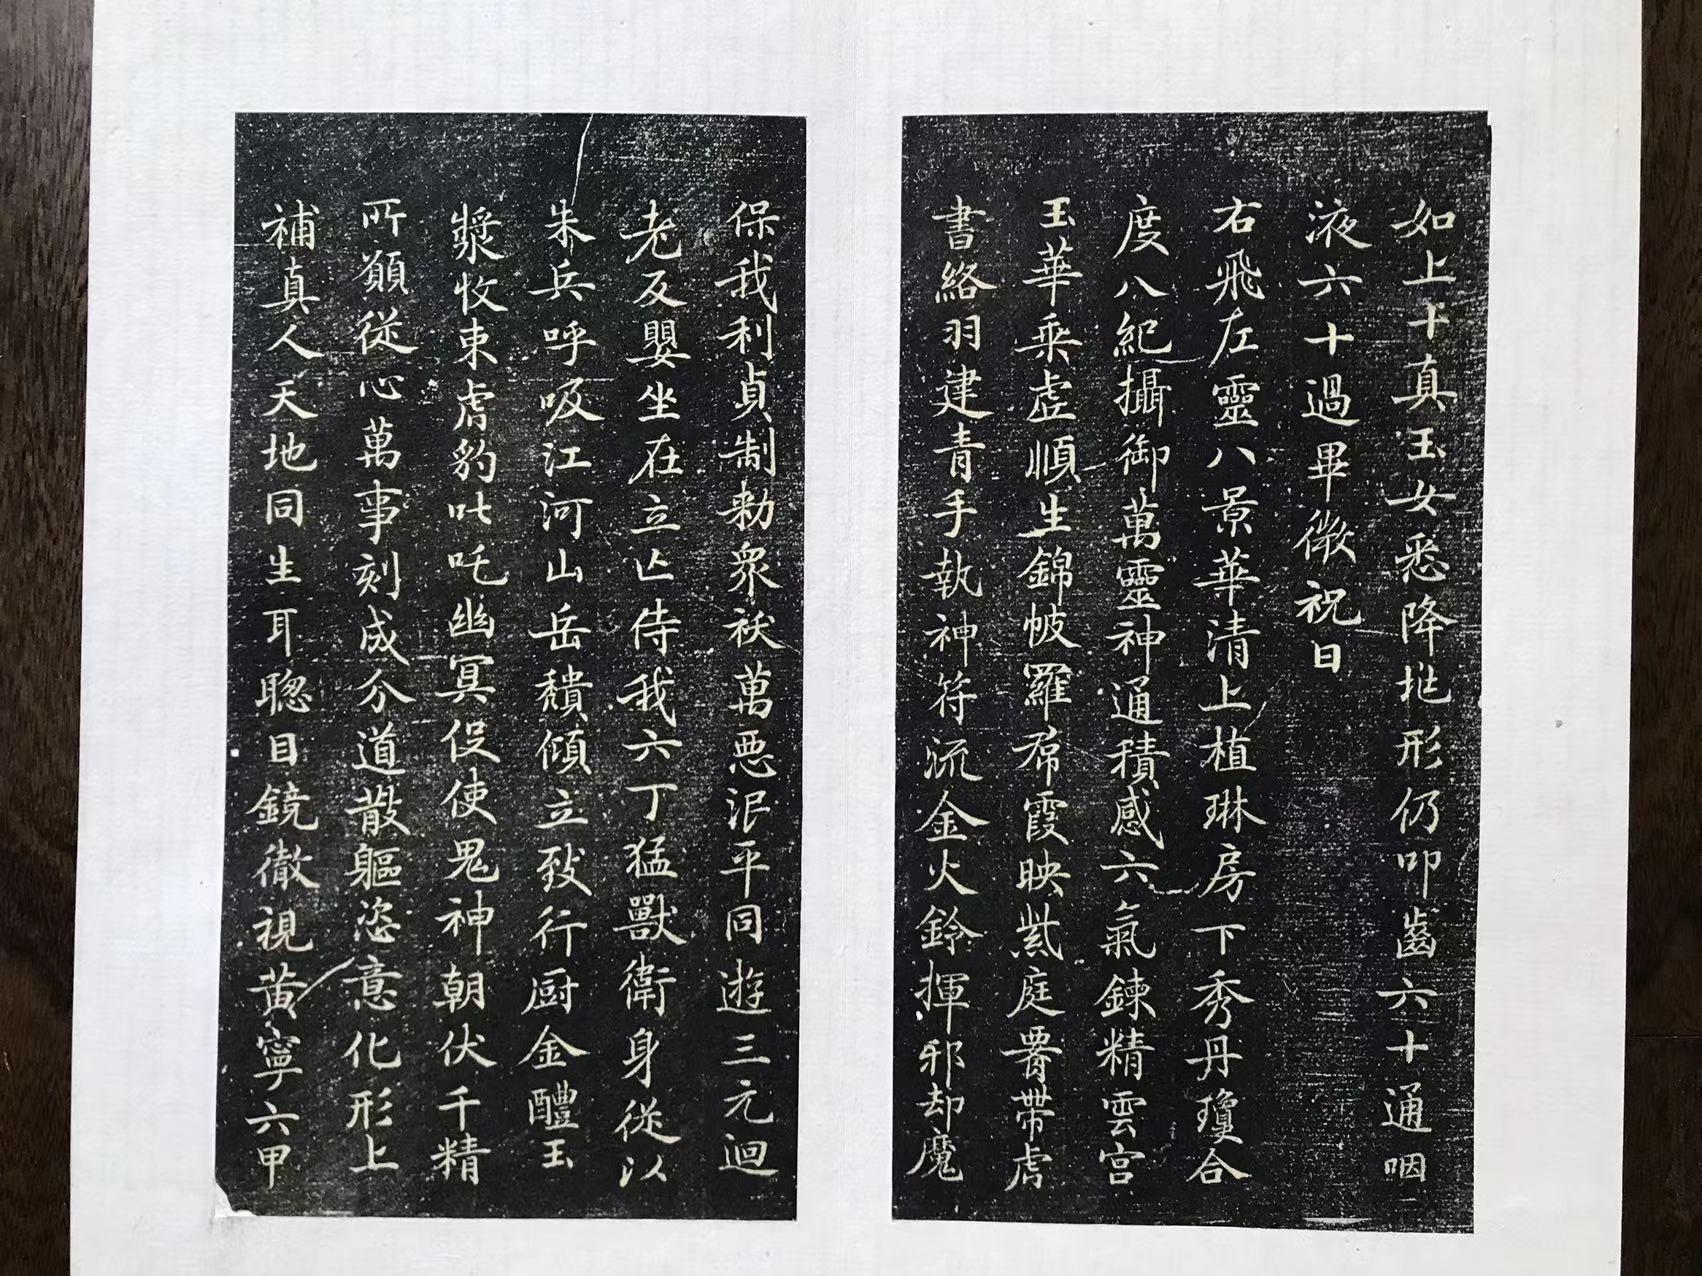 如上十真玉女悉降地形仍叩齒六十通咽
液六十過畢微祝曰
右飛左靈八景華清上植琳房下秀丹瓊合
度八紀攝御萬靈神通積感六氣鍊精雲宮
玉華乘虛順生錦帔羅帬霞映紫庭腰帶虎
書絡羽建青手執神符流金火鈴揮邪却魔
保我利貞制勑衆祅萬惡泯平同遊三元迴
老反嬰坐在立亡侍我六丁猛獸衛身從以
朱兵呼吸江河山岳頹傾立致行厨金醴玉
漿收束虎豹叱吒幽冥役使鬼神朝伏千精
所願從心萬事刻成分道散軀恣意化形上
補真人天地同生耳聰目鏡徹視黃寧六甲